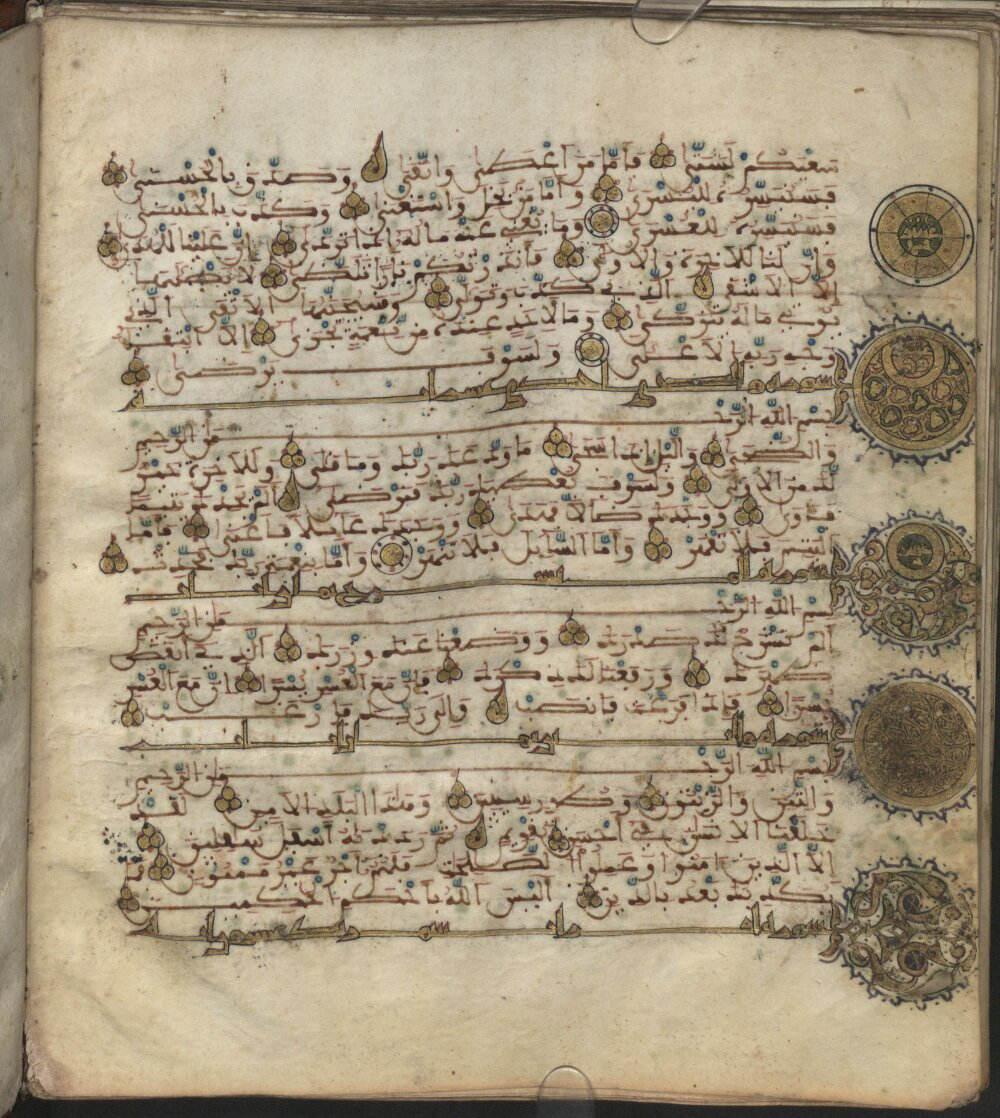 سعيكم لشتى فأما من أعطى واتقى وصدق بالحسنى
فسنيسره لليسرى وأما من بخل واستغنى وكذب بالحسنى
فسنيسره للعسرى وما يغني عنه ماله إذا تردى إن علينا للهدى
وإن لنا للأخرة والأولى فأنذرتكم نارا تلظى لا يصليها
إلا الأشقى الذي كذب وتولى وسيجنبها الأتقى الذي
يوتي ماله يتزكى وما لأحد عنده من نعمة تجزى إلا ابتغاء
وجه ربه الأعلى ولسوف يرضى
سورة والضحى
بسم الله الرحمن الرحيم
والضحى واليل إذا سجى ما ودعك ربك وما قلى وللأخرة خير
لك من الأولى ولسوف يعطيك ربك فترضى ألم يجدك يتيما
فاوى ووجدك ضالا فهدى ووجدك عايلا فأغنى فأما
اليتيم فلا تقهر وأما السايل فلا تنهر وأما بنعمة ربك فحدث
سورة
بسم الله الرحمن الرحيم
ألم نشرح لك صدرك ووضعنا عنك وزرك الذي أنقض
ظهرك ورفعنا لك ذكرك فإن مع العسر يسرا إن مع العسر
يسرا فإذا فرغت فانصب وإلى ربك فارغب
سورة والتين
بسم الله الرحمن الرحيم
والتين والزيتون وطور سينين وهذا البلد الأمين لقد
خلقنا الإنسن في أحسن تقويم ثم رددنه أسفل سفلين
إلا الذين امنوا وعملوا الصلحت فلهم أجر غير ممنون فما
يكذبك بعد بالدين أليس الله بأحكم الحكمين
سورة